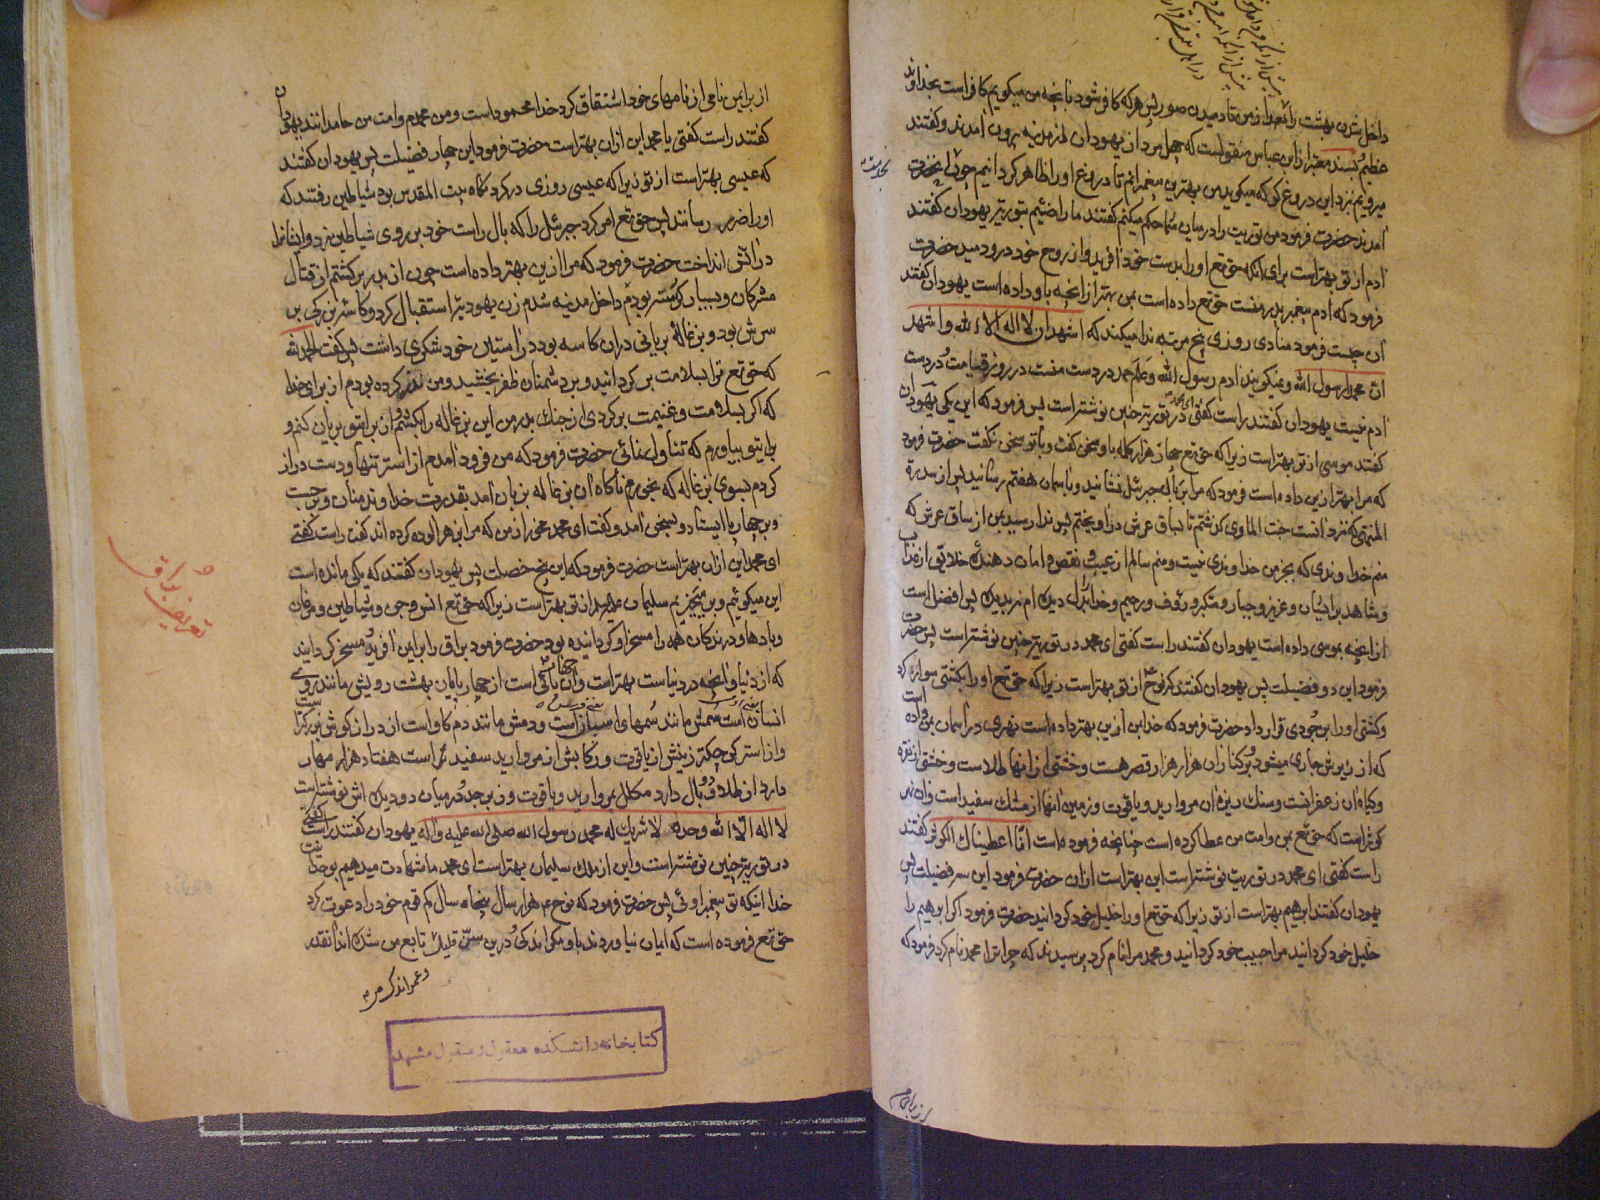 داخل شدن بهشت را بعد از من تا دمیدن صور پس هر که کافر شود بانچه من میکویم کافر است بخداوند
عظیم بسند معتبر از ابن عباس منقولست که چهل مرد از یهودان از مدینه بیرون آمدند و کفتند
میرویم نزد این دروغ کو که میکوید من بهترین پیغمبرانم تا دروغ او را ظاهر کردانیم چون بخدمت حضرت
آمدند حضرت فرمود من توریت را در میان شما حکم میکنم کفتند ما راضیئیم بتوریة یهودان کفتند
آدم از تو بهتر است برای آنکه حق تع او را بدست خود آفرید و از روح خود در او دمید حضرت
فرمود که آدم پیغمبر پدر منست حق تع داده است بمن بهتر از آنچه باو داده است یهودان کفتند
آن چیست فرمود منادی روزی پنج مرتبه ندا میکند که اشهد ان لا اله الا الله و اشهد
ان محمدا رسول الله و نمیکویند آدم رسول الله و علم حمد در دست منست در روز قیامت و در دست
آدم نیست یهودان کفتند راست کفتی ای محمد در توریة چنین نوشته است پس فرمود که این یکی یهودان
کفتند موسی از تو بهتر است زیرا که حق تع چهار هزار کلمه باو سخن کفت و با تو سخنی نکفت حضرت فرمود
که مرا بهتر ازین داده است فرمود که مرا بر بال جبرئیل نشانید و باسمان هفتم رسانید پس از سدرة
المنتهی که نزد آنست جنت الماوی کذشتم تا بساق عرش در آویختم پس ندا رسید بمن از ساق عرش که
منم خداوندی که بجز من خداوندی نیست و منم سالم از عیب و نقص و امان دهنده خلایق از عذاب
و شاهد بر ایشان و عزیز و جبار و متکبر و رؤف و رحیم و خدا را بدل دیده ام نه بدیده پس این افضل است
از آنچه بموسی داده است یهودان کفتند راست کفتی ای محمد در توریة چنین نوشته است پس حضرت
فرمود این دو فضیلت پس یهودان کفتند که نوح از تو بهتر است زیرا که حق تع او را بکشتی سواره کرد
و کشتی او را بر جودی قرار داد حضرت فرمود که خدا بمن ازین بهتر داده است نهری در آسمان بمن داده است
که از زیر عرش جاری میشود بر کنار آن هزار هزار قصر هست و خشتی از آنها طلاست و خشتی از نقره
و کیاه آن زعفرانست و سنک ریزه آن مروارید و یاقوت و زمین آنها از مشک سفید است و آن نهر
کوثر است که حق تع بمن و امت من عطا کرده است چنانچه فرموده است انا اعطیناک الکوثر کفتند
راست کفتی ای محمد در توریت نوشته است این بهتر است از آن حضرت فرمود این سه فضیلت پس
یهودان کفتند ابرهیم بهتر است از تو زیرا که حق تع او را خلیل خود کردانید حضرت فرمود اکر ابرهیم را
خلیل خود کردانید مرا حبیب خود کردانید و محمد مرا نام کرد پرسیدند که چرا ترا محمد نام کرد فرمود که
از برای من نامی از نامهای خود اشتقاق کرد خدا محمود است و من محمدم و امت من حامدانند یهودان
کفتند راست کفتی یا محمد این از آن بهتر است حضرت فرمود این چهار فضیلت پس یهودان کفتند
که عیسی بهتر است از تو زیرا که عیسی روزی در کرد کاه بیت المقدس بود شیاطین رفتند که
او را ضرر رسانند پس حق تع امر کرد جبرئیل را که بال راست خود بر روی شیاطین زد و ایشانرا
در آتش انداخت حضرت فرمود که مرا ازین بهتر داده است چون از بدر برکشتم از قتال
مشرکان و بسیار کرسنه بودم داخل مدینه شدم زن یهودیة استقبال کرد و کاسه بزرکی بر
سرش بود و بزغاله بریانی در آن کاسه بود در آستین خود شکری داشت پس کفت الحمد لله
که حق تع ترا بسلامت برکردانید و بر دشمنان ظفر بخشید و من نذر کرده بودم از برای خدا
که اکر بسلامت و غنیمت برکردی از جنک بدر من این بزغاله را بکشم و از برای تو بریان کنم و
برای تو بیاورم که تناول نمائی حضرت فرمود که من فرود آمدم از استر شهبا و دست دراز
کردم بسوی بزغاله که بخورم ناکاه آن بزغاله بزبان آمد بقدرت خداوند منان و برجست
و بر چهار پا ایستاد و بسخن آمد و کفت ای محمد مخور از من که مرا بزهر آلوده کرده اند کفت راست کفتی
ای محمد این از آن بهتر است حضرت فرمود که این پنج خصلت پس یهودان کفتند که یکی مانده است
این میکوئیم و برمیخیزیم سلیمان علیه السلام از تو بهتر است زیرا که حق تع انس و جن و شیاطین و مرغان
و بادها و درندکان همه را مسخر او کردانیده بود حضرت فرمود براق را برای من آفرید و مسخر کردانید
که از دنیا و آنچه در دنیاست بهتر است و آن براق است از چهارپایان بهشت رویش مانند روی
انسان است سمش مانند سمهای اسبان است و دمش مانند دم کاو است از دراز کوش بزرکتر است
و از استر کوچکتر زینش از یاقوت و رکابش از مروارید سفید تر است هفتاد هزار مهار
دارد از طلا و دو بال دارد مکلل بمروارید و یاقوت و زبرجد در میان دو دیده اش نوشته است
لا اله الا الله وحده لا شریک له محمد رسول الله صلی الله علیه و آله یهودان کفتند راست کفتی
در توریة چنین نوشته است و این از ملک سلیمان بهتر است ای محمد ما شهادت میدهیم بوحدانیت
خدا و اینکه تو پیغمبر اوئی پس حضرت فرمود که نوح ع هزار سال پنجاه سال کم قوم خود را دعوت کرد
حق تع فرموده است که ایمان نیاوردند باو مکر اندکی و درین سن قلیل تابع من شده اند آنقدر
و عمر اندک من
تعریف براق
کتابخانه دانشکده معقول و منقول مشهد